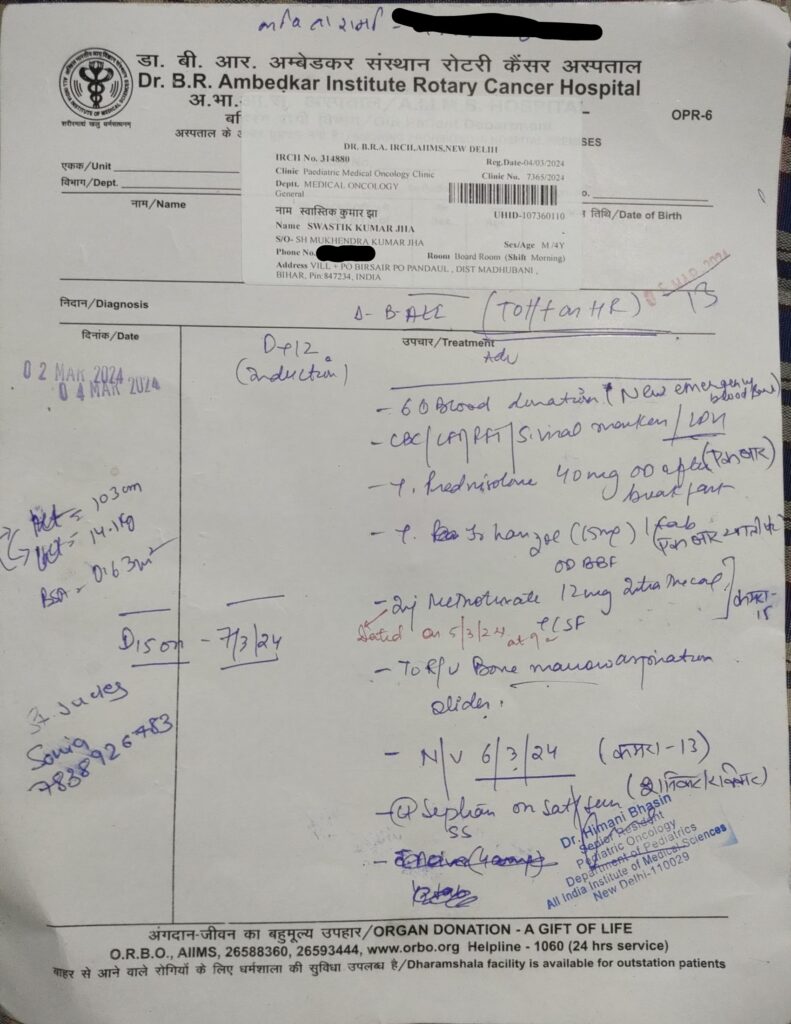 डा. बी. आर. अम्बेडकर संस्थान रोटरी कैंसर अस्पताल
Dr. B.R. Ambedkar Institute Rotary Cancer Hospital
अ.भा.
OPR-6
शरीरमाद्यं खलु धर्मसाधनम्
अस्पताल के
SES
एकक/Unit
विभाग/Dept.
नाम/Name
DR. B.R.A. IRCH,AIIMS,NEW DELHI
IRCH No. 314880
Reg.Date-04/03/2024
Clinic Paediatric Medical Oncology Clinic
Clinic No. 7365/2024
Deptt. MEDICAL ONCOLOGY
General
नाम स्वास्तिक कुमार झा
UHID-107360110
Name SWASTIK KUMAR JHA
S/O- SH MUKHENDRA KUMAR JHA
Sex/Age M /4Y
Phone No.
Room Board Room (Shift Morning)
Address VILL + PO BIRSAIR PO PANDAUL , DIST MADHUBANI ,
BIHAR, Pin:847234, INDIA
o.
तिथि/Date of Birth
निदान/Diagnosis
13
दिनांक/Date
उपचार/Treatment
Adv
02 MAR 2024
04 MAR 2024
(Induction)
- 6 Blood donation (New emergency
blood bank)
- CBC/LFT/RFT/S. viral markers/LDH
- T. Prednisolone 40mg OD after
breakfast
(15mg) 1 tab
OD BBF
Ht = 103 cm
Wt = 14.1kg
BSA = 0.63 m²
- Inj Methotrexate 12mg Intrathecal
कमरा-
15
on 5/3/24 at 9
CSF
- 7/3/24
- To R/V Bone marrow aspiration
slides.
Sonia
7838926483
- N/V 6/3/24 (कमरा-13)
- Septran on Sat/Sun
SS
Dr. Himani Bhasin
Senior Resident
Pediatric Oncology
Department of Pediatrics
All India Institute of Medical Sciences
New Delhi-110029
अंगदान-जीवन का बहुमूल्य उपहार/ORGAN DONATION - A GIFT OF LIFE
O.R.B.O., AIIMS, 26588360, 26593444, www.orbo.org Helpline - 1060 (24 hrs service)
बाहर से आने वाले रोगियों के लिए धर्मशाला की सुविधा उपलब्ध है/Dharamshala facility is available for outstation patients